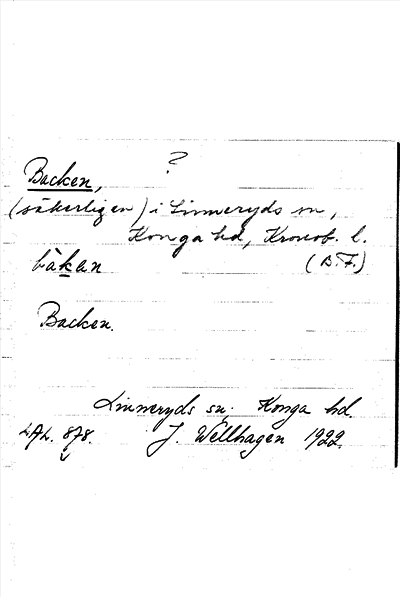 ?
Backen,
(säkerligen) i Linneryds sn,
Konga hd, Kronob. l.
bàkan (B.F.)
Backen.
Linneryds sn, Konga hd.
LAL. 878. J. Wellhagen 1922.